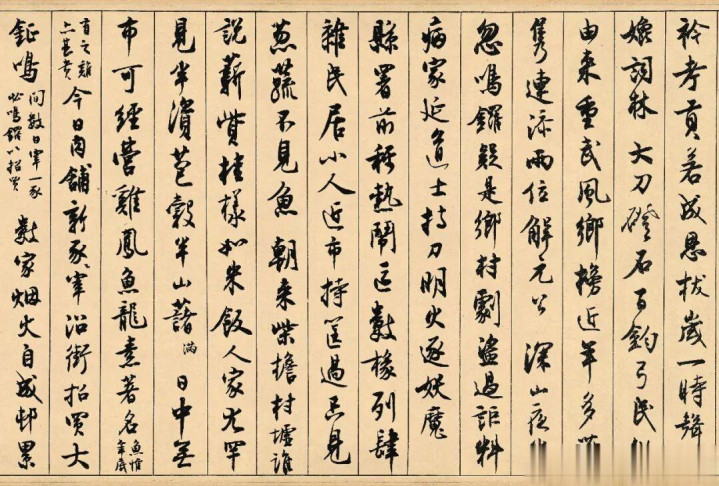 衿考貢若成恩拔歲一時聲
詞林大刀磴石百鈞弓民
由来重武風鄉榜近年多
雋連添兩位解元公 深山夜
忽鳴鑼疑是鄉村劇盜過詎料
病家延道士持刀明火逐妖魔
縣署前稱熱鬧區數椽列肆
雜民居小人近市持筐過只見
蔥蔬不見魚 朝来柴擔村墟誰
說薪貲桂樣如米飯人家尤罕
見半資苞穀半山藷 滿 日中無
市可經營雞鳳魚龍素著名 魚惟年歲
有之雞亦甚貴 今日肉舖新豕宰沿街招買大
鉦鳴 間數日宰一豕必鳴鑼以招買 數家烟火自成邨累